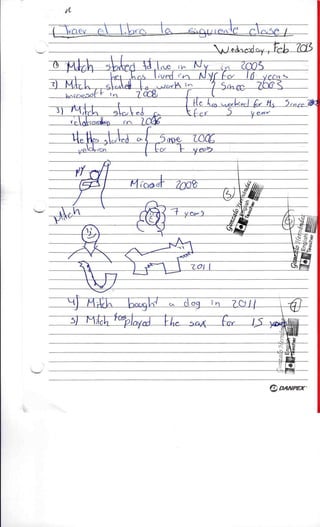 Traer el libro la siguiente clase!
Wednesday, Feb. 2013
1) Mitch started to live in NY in 2003
He has lived in NY for 10 years
2) Mitch started to work in Since 2003
microsoft in 2008
He has worked for Ms Since
for 5 year
3) Mitch started
relationship in 2006
He has started a Since 2006
relation for 7 years
NY
Microsoft 2008
Mitch
7 years
5
6
2011
4) Mitch bought a dog in 2011
7
5) Mitch has played the sax for 15 years
Gonzalo Hernández
English
Teacher
DANPEX